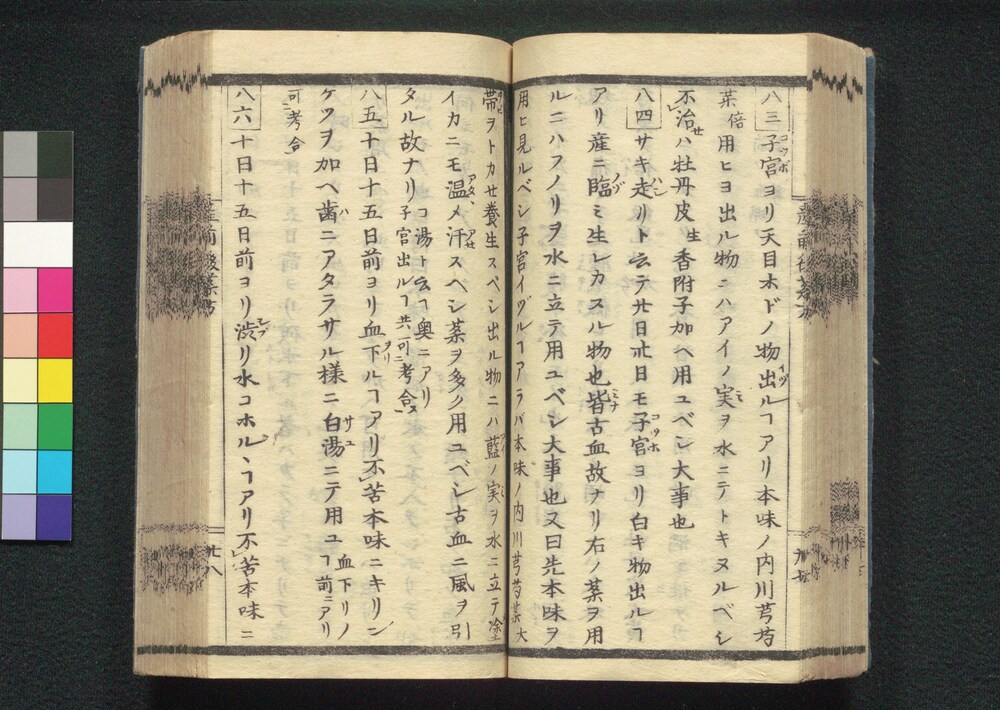 八三 子宮ヨリ天目ホドノ物出ルヿアリ本味ノ内川芎芍
薬倍用ヒヨ出ル物ニハアイノ実ヲ水ニテトキヌルベシ
不治ハ牡丹皮生香附子加ヘ用ユベシ大事也
八四 サキ走リト云テ廿日卅日モ子宮ヨリ白キ物出ルヿ
アリ産ニ臨ミ生レカスル物也皆古血故ナリ右ノ薬ヲ用
ルニハフノリヲ水ニ立テ用ユベシ大事也又曰先本味ヲ
用ヒ見ルベシ子宮イヅルヿアラバ本味ノ内川芎芍薬大
帯ヲトカセ養生スベシ出ル物ニハ藍ノ実ヲ水ニ立テ塗
イカニモ温メ汗スベシ薬ヲ多ク用ユベシ古血ニ風ヲ引
タル故ナリ子宮出ルヿ共可ニ考合ス コ湯ト云ヿ奥ニアリ
八五 十日十五日前ヨリ血下ルヿアリ不苦本味ニキリン
ケツヲ加ヘ歯ニアタラサル様ニ白湯ニテ用ユ血下リノヿ前ニアリ
可ニ考合
八六 十日十五日前ヨリ渋リ水コホル丶ヿアリ不苦本味ニ
産前後薬方
廿八